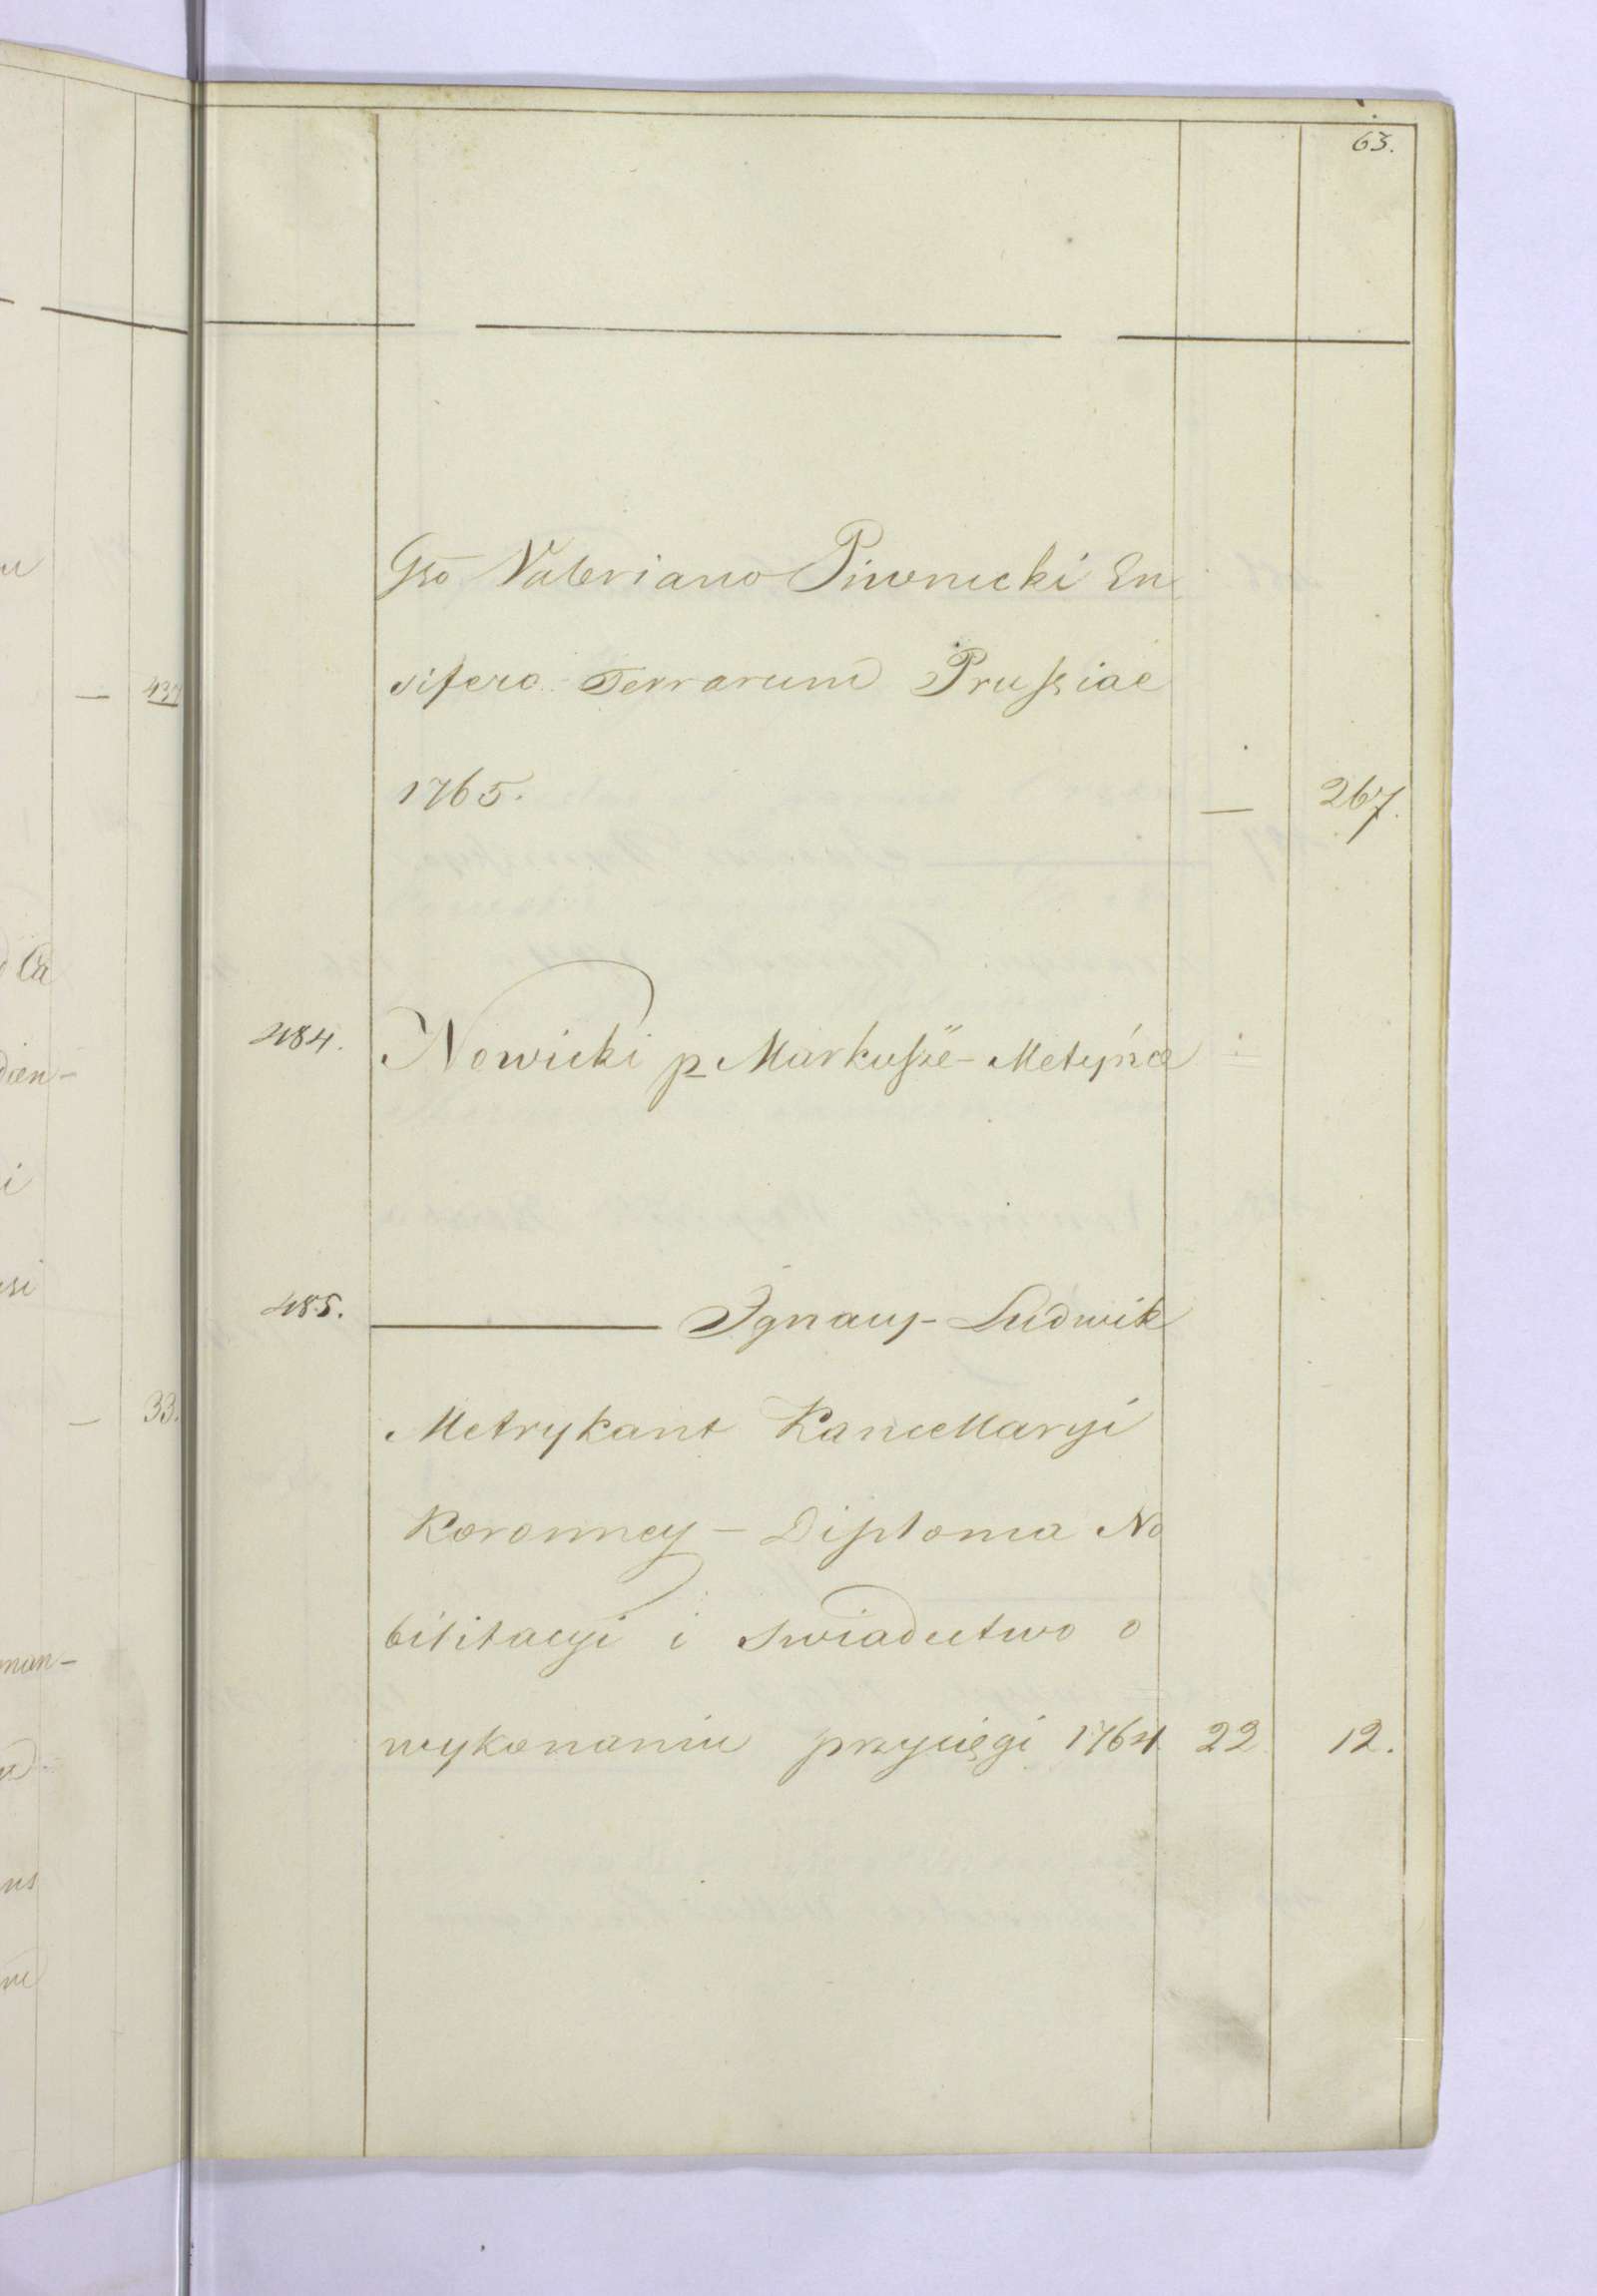 63.
Gso Valeriano Piwnicki En
sifero Terrarum Prussiae
1765. — 267.
484. Nowicki p Markusze Metyńce
485. ——— Ignacy Ludwik
Metrykant Kancellaryi
Koronney — Diploma No
bilitacyi i swiadectwo o
wykonaniu przysięgi 1764 22 12.
— 33.